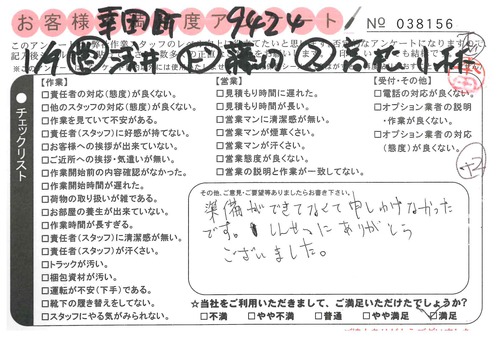 お客様満足度アンケート
幸田町 9424
No 038156
チェックリスト
【作業】
□責任者の対応(態度)が良くない。
□他のスタッフの対応(態度)が良くない。
□作業を見ていて不安がある。
□責任者(スタッフ)に好感が持てない。
□お客様への挨拶が出来ていない。
□ご近所への挨拶・気遣いが無い。
□作業開始前の内容確認がなかった。
□作業開始時間が遅れた。
□荷物の取り扱いが雑である。
□お部屋の養生が出来ていない。
□作業時間が長すぎる。
□責任者(スタッフ)に清潔感が無い。
□責任者(スタッフ)が汗くさい。
□トラックが汚い。
□梱包資材が汚い。
□運転が不安(下手)である。
□靴下の履き替えをしてない。
□スタッフにやる気がみられない。
【営業】
□見積もり時間に遅れた。
□見積もり時間が長い。
□営業マンに清潔感が無い。
□営業マンが煙草くさい。
□営業マンが汗くさい。
□営業態度が良くない。
□営業の説明と作業が一致してない。
【受付・その他】
□電話の対応が良くない。
□オプション業者の説明
・作業が良くない。
□オプション業者の対応
(態度)が良くない。
その他、ご意見・ご要望等ありましたらお書き下さい。
準備ができてなくて申しわけなかった
です。しんせつにありがとう
ございました。
☆当社をご利用いただきまして、ご満足いただけたでしょうか?
□不満 □やや不満 □普通 □やや満足 □満足